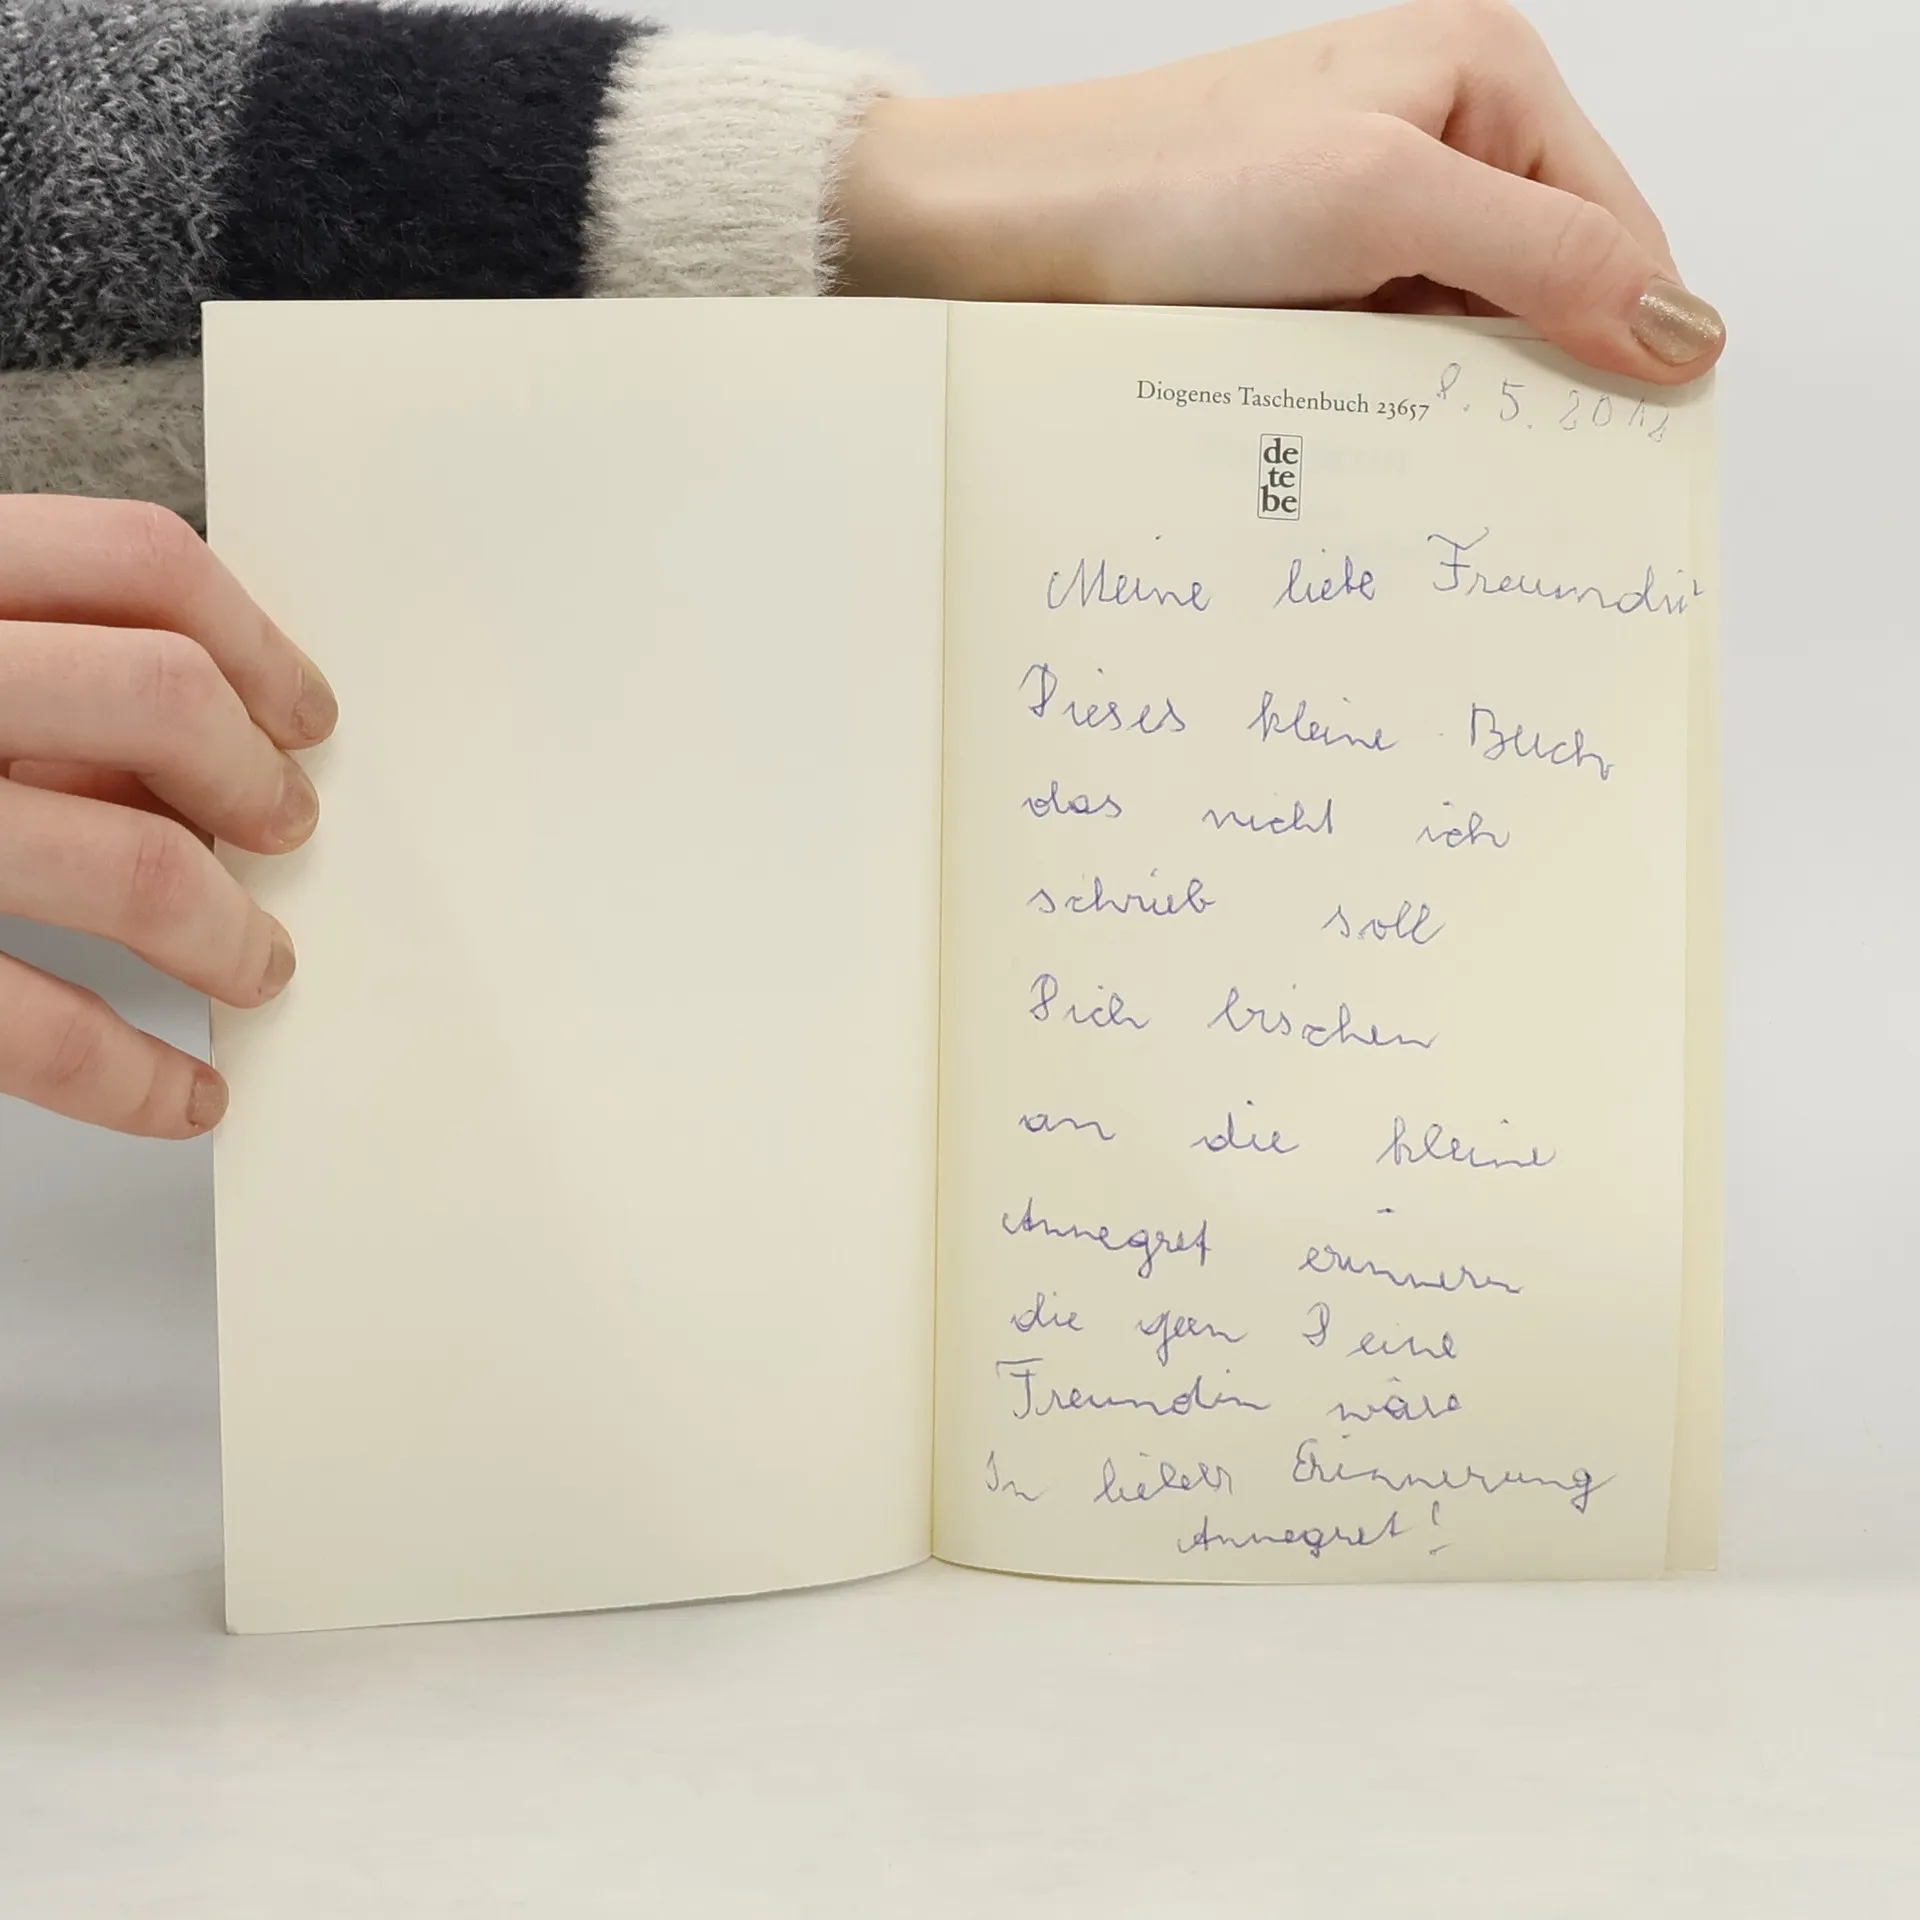 Diogenes Taschenbuch 23657
8. 5. 2012
de
te
be
Meine liebe Freundin
Dieses kleine Buch
das nicht ich
schrieb soll
Dich bischen
an die kleine
Annegret erinnern
die gern Deine
Freundin wäre
In lieber Erinnerung
Annegret!